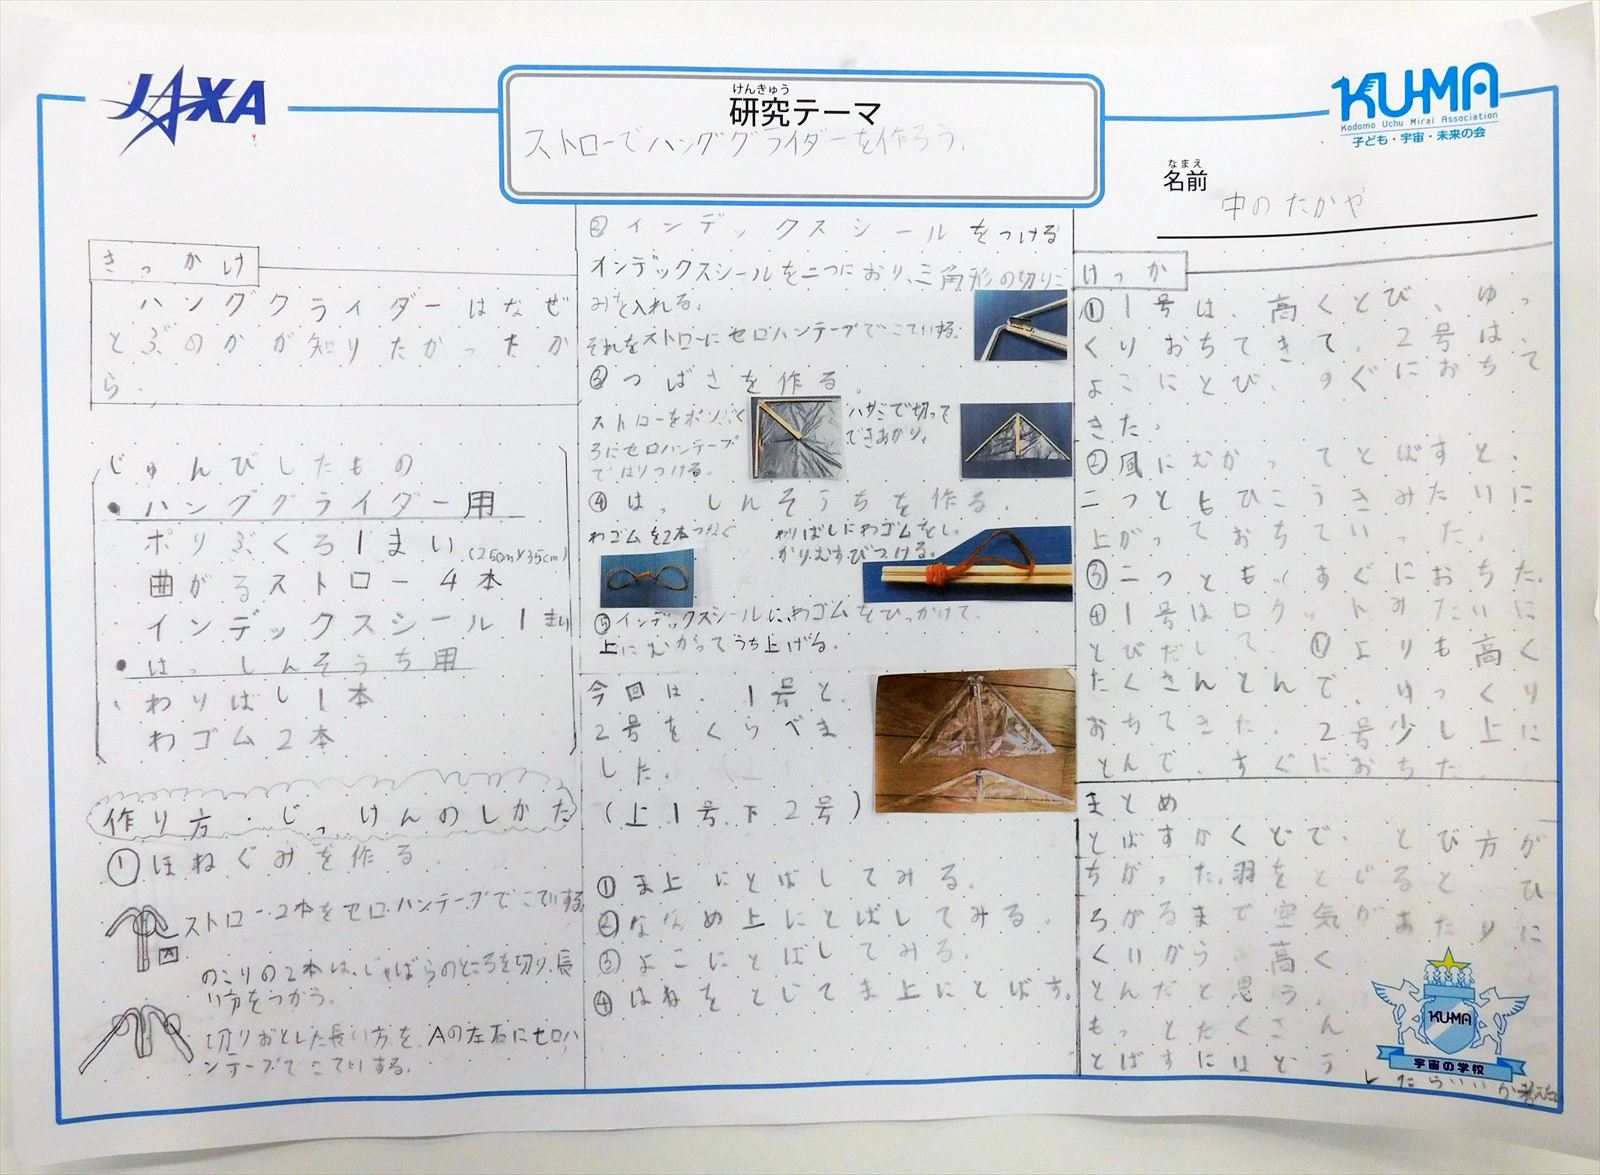 JAXA
けんきゅう
研究テーマ
ストローでハンググライダーを作ろう。
KU-MA
Kodomo Uchu Mirai Association
子ども・宇宙・未来の会
なまえ
名前
中のたかや
きっかけ
ハンググライダーはなぜ
とぶのかが知りたかったか
ら。
じゅんびしたもの
●ハンググライダー用
ポリぶくろ1まい(25cm×35cm)
曲がるストロー4本
インデックスシール1まい
●はっしんそうち用
わりばし1本
わゴム2本
作り方・じっけんのしかた
①ほねぐみを作る
ストロー2本をセロハンテープでこていする
A
のこりの2本は、じゃばらのところを切り、長
い方をつかう。
切りおとした長い方を、Aの左右にセロハ
ンテープでこていする。
②インデックスシールをつける
インデックスシールを二つにおり、三角形の切りこ
みを入れる。
それをストローにセロハンテープでこていする。
③つばさを作る。
ストローをポリぶく
ろにセロハンテープ
ではりつける。
ハサミで切って
できあがり。
④はっしんそうちを作る。
わゴムを2本つなぐ
わりばしにわゴムをしっ
かりむすびつける。
⑤インデックスシールに、わゴムをひっかけて、
上にむかってうち上げる。
今回は、1号と、
2号をくらべま
した。
(上1号、下2号)
①ま上にとばしてみる。
②ななめ上にとばしてみる。
③よこにとばしてみる。
④はねをとじてま上にとばす。
けっか
①1号は、高くとび、ゆっ
くりおちてきて、2号は、
よこにとび、すぐにおちて
きた。
②風にむかってとばすと、
二つともひこうきみたいに
上がっておちていった。
③二つともすぐにおちた。
④1号はロケットみたいに
とびだして、①よりも高く
たくさんとんで、ゆっくり
おちてきた。2号少し上に
とんで、すぐにおちた。
まとめ
とばすかくどで、とび方が
ちがった。羽をとじると、ひ
ろがるまで空気があたりに
くいから、高く
とんだと思う。
もっとたくさん
とばすにはどう
したらいいか考えたい
KU-MA
宇宙の学校